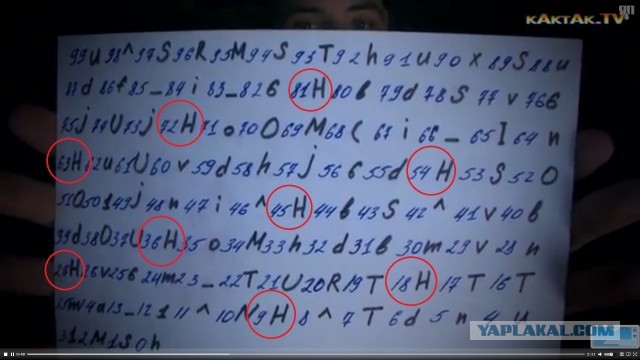 КАКТАК.TV
99u 98^ 97S 96R 95M 94S 93T 92h 91u 90x 89S 88u
87d 86f 85_ 84i 83_ 826 81H 80в 79d 78S 77v 766
75j 74U 73j 72H 71o 70O 69M 68( 67i 66_ 65I 64n
63H 62u 61U 60v 59d 58h 57j 566 55d 54H 53S 52O
51O 501 49j 48n 47i 46^ 45H 44в 43S 42^ 41v 40в
39d 38O 37U 36H 35o 34M 33h 32d 31в 30m 29v 28n
26v 256 24m 23_ 22T 21U 20R 19T 18H 17T 16T
13_ 121 11^ 10N 9H 8^ 7T 6d 5n 4u
312M1S0h
YAPLAKAL.COM